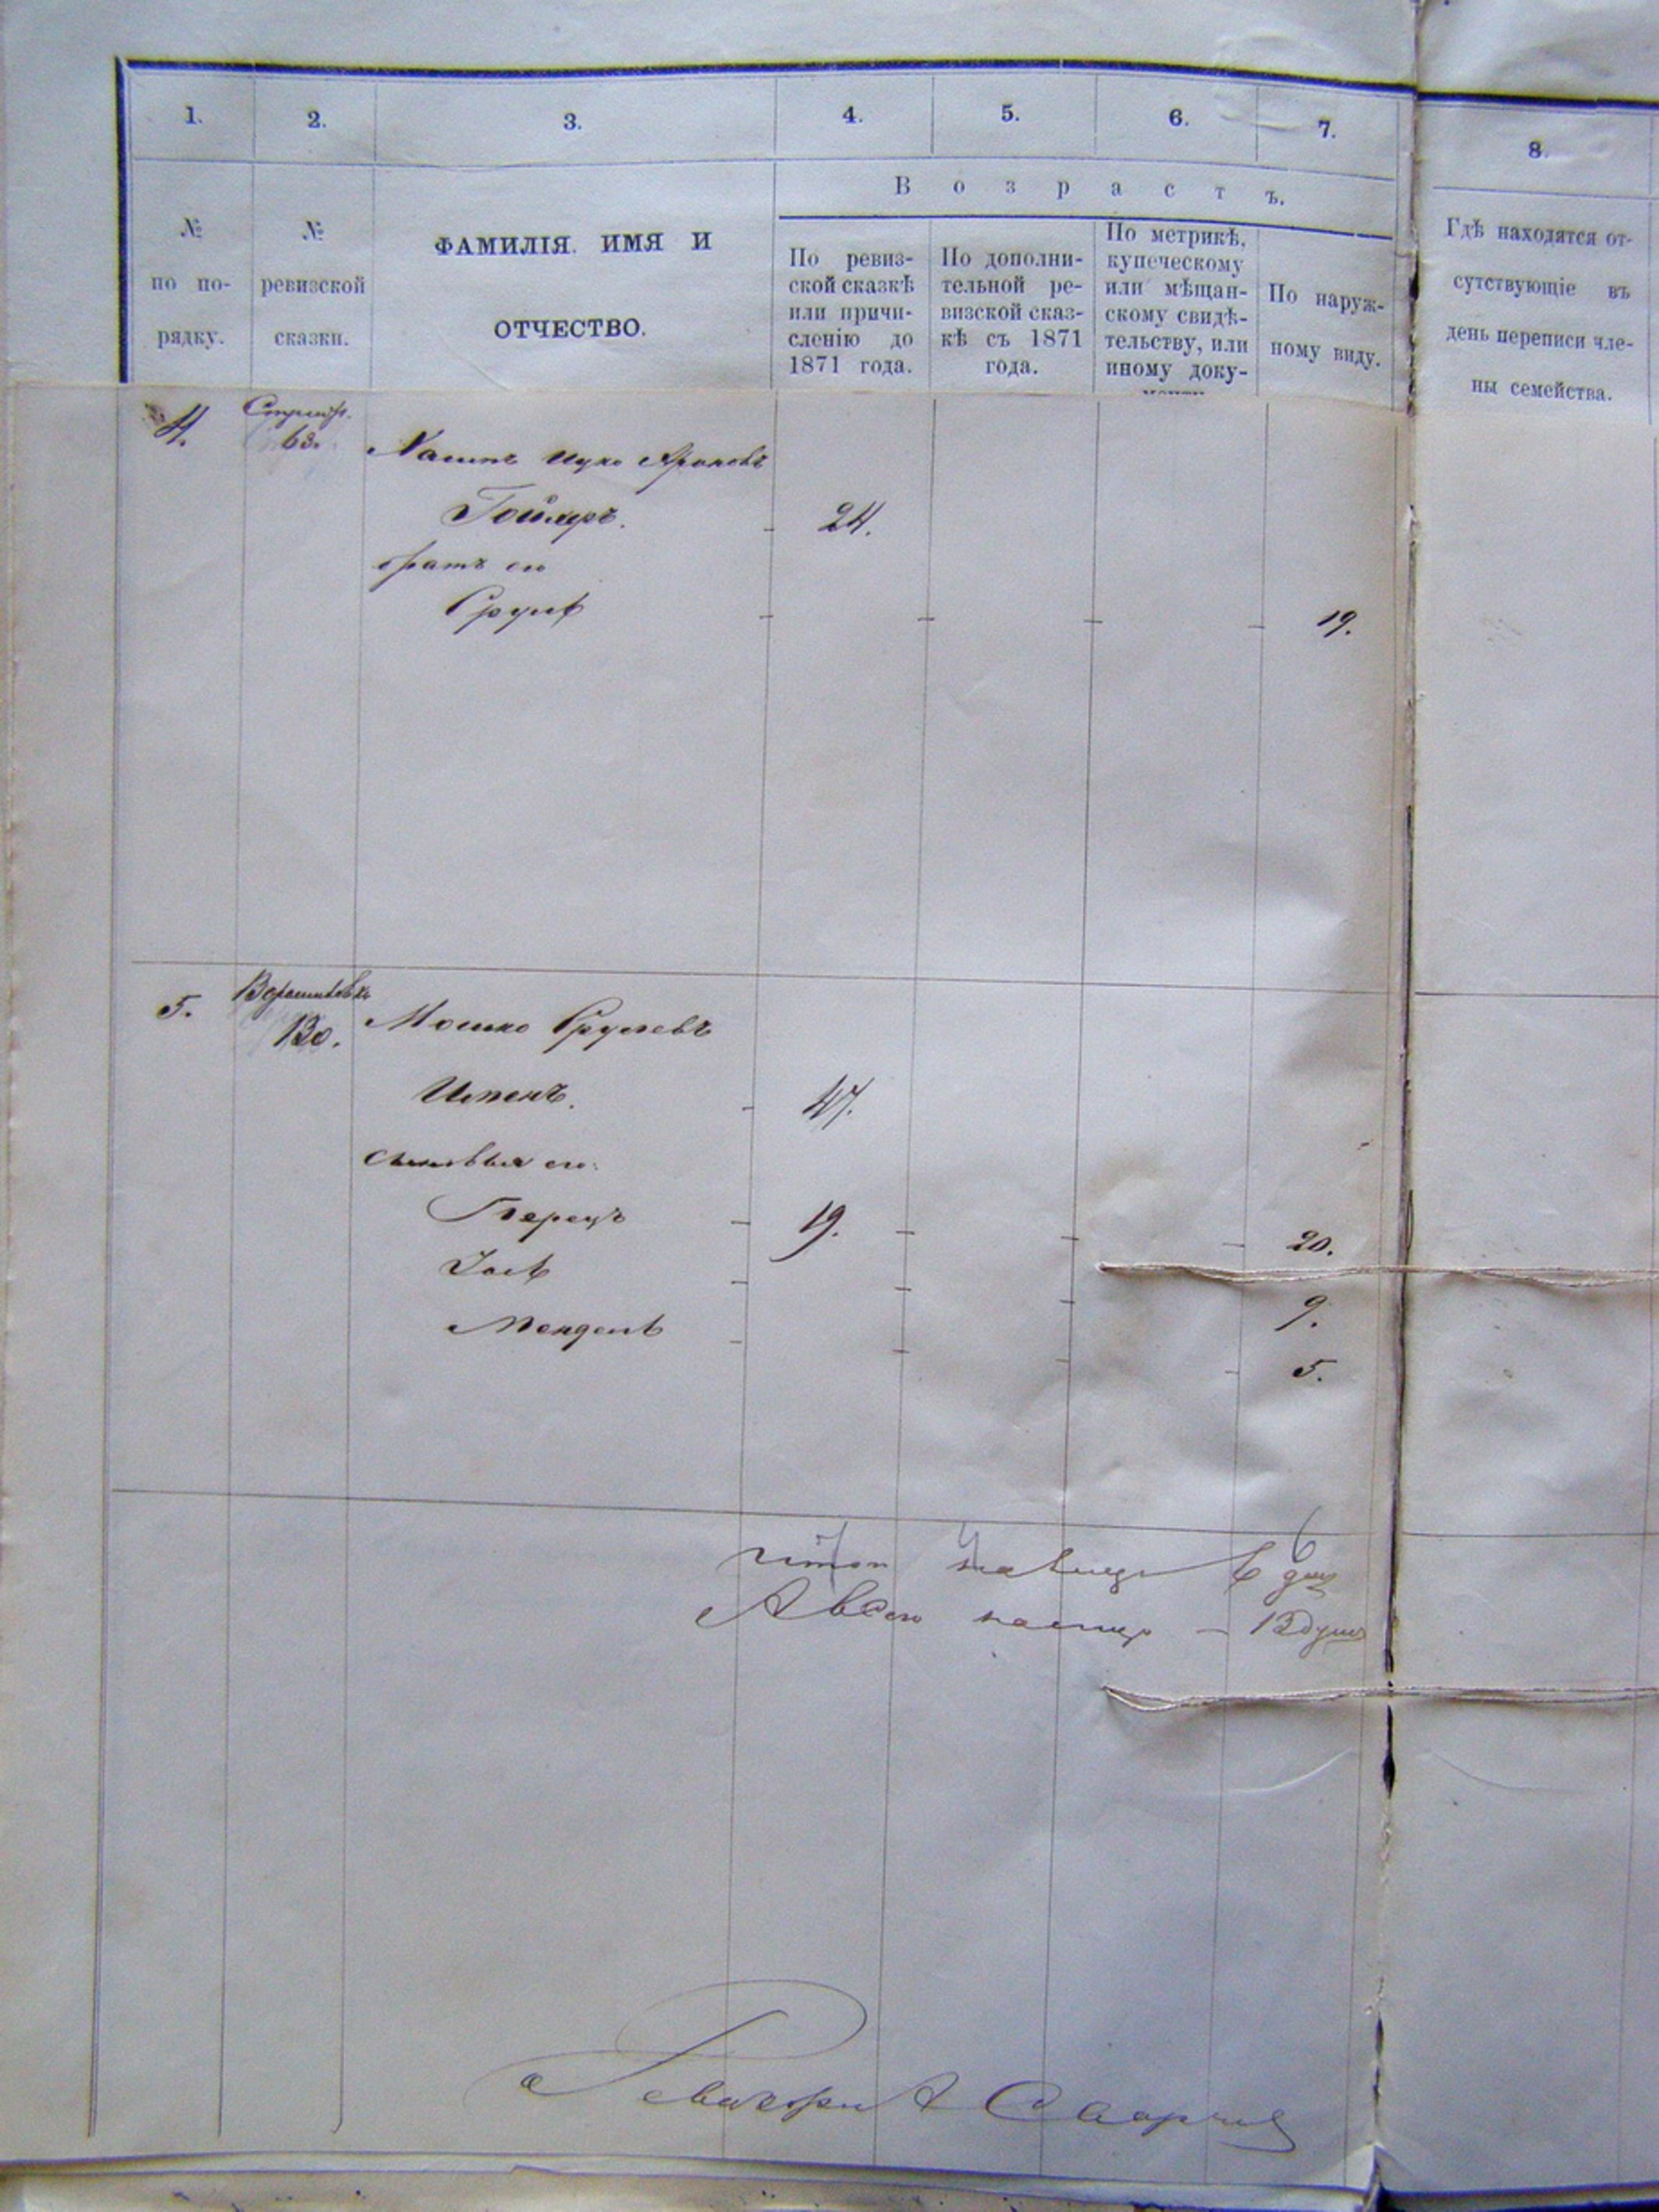 1.
2.
3.
4.
5.
6.
7.
8.
В о з р а с т ъ.
№
по по-
рядку.
№
ревизской
сказки.
ФАМИЛІЯ. ИМЯ И
ОТЧЕСТВО.
По ревиз-
ской сказкѣ
или причи-
сленію до
1871 года.
По дополни-
тельной ре-
визской сказ-
кѣ съ 1871
года.
По метрикѣ,
купеческому
или мѣщан-
скому свидѣ-
тельству, или
иному доку-
По наруж-
ному виду.
Гдѣ находятся от-
сутствующіе въ
день переписи чле-
ны семейства.
4.
63.
Ицко Ароновъ
24.
братъ его
Сруль
19.
5.
130.
Мошко Срулевъ
47.
сыновья его:
Перецъ 19. 20.
Іось 9.
Мендель 5.
6
А всего 13 душъ